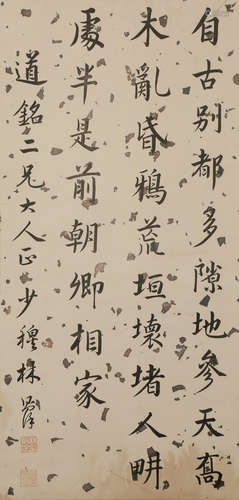 自古别都多隙地參天喬
木亂昏鴉荒垣壞堵人畊
處半是前朝卿相家
道銘二兄大人正少穆林